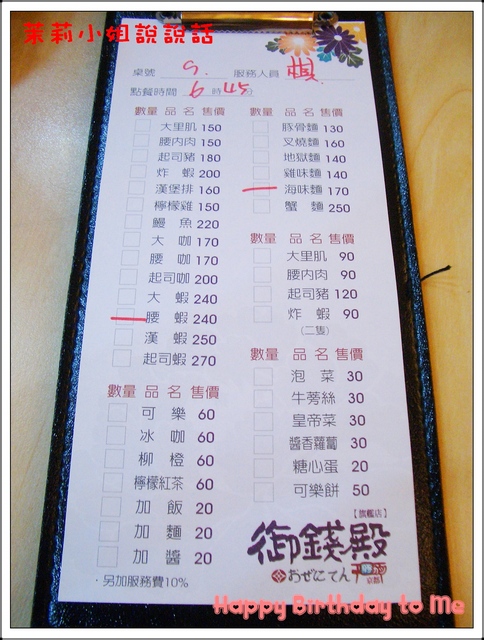 茉莉小姐說說話
桌號 9. 服務人員
點餐時間 6 時 45 分
數量 品名 售價
大里肌 150
腰內肉 150
起司豬 180
炸蝦 200
漢堡排 160
檸檬雞 150
鰻魚 220
大咖 170
腰咖 170
起司咖 200
大蝦 240
腰蝦 240
漢蝦 250
起司蝦 270
數量 品名 售價
可樂 60
冰咖 60
柳橙 60
檸檬紅茶 60
加飯 20
加麵 20
加醬 20
·另加服務費10%
數量 品名 售價
豚骨麵 130
叉燒麵 160
地獄麵 140
雞味麵 140
海味麵 170
蟹麵 250
數量 品名 售價
大里肌 90
腰內肉 90
起司豬 120
炸蝦 90
(二隻)
數量 品名 售價
泡菜 30
牛蒡絲 30
皇帝菜 30
醬香蘿蔔 30
糖心蛋 20
可樂餅 50
【旗艦店】
御錢殿
おぜにてん
京都
Happy Birthday to Me